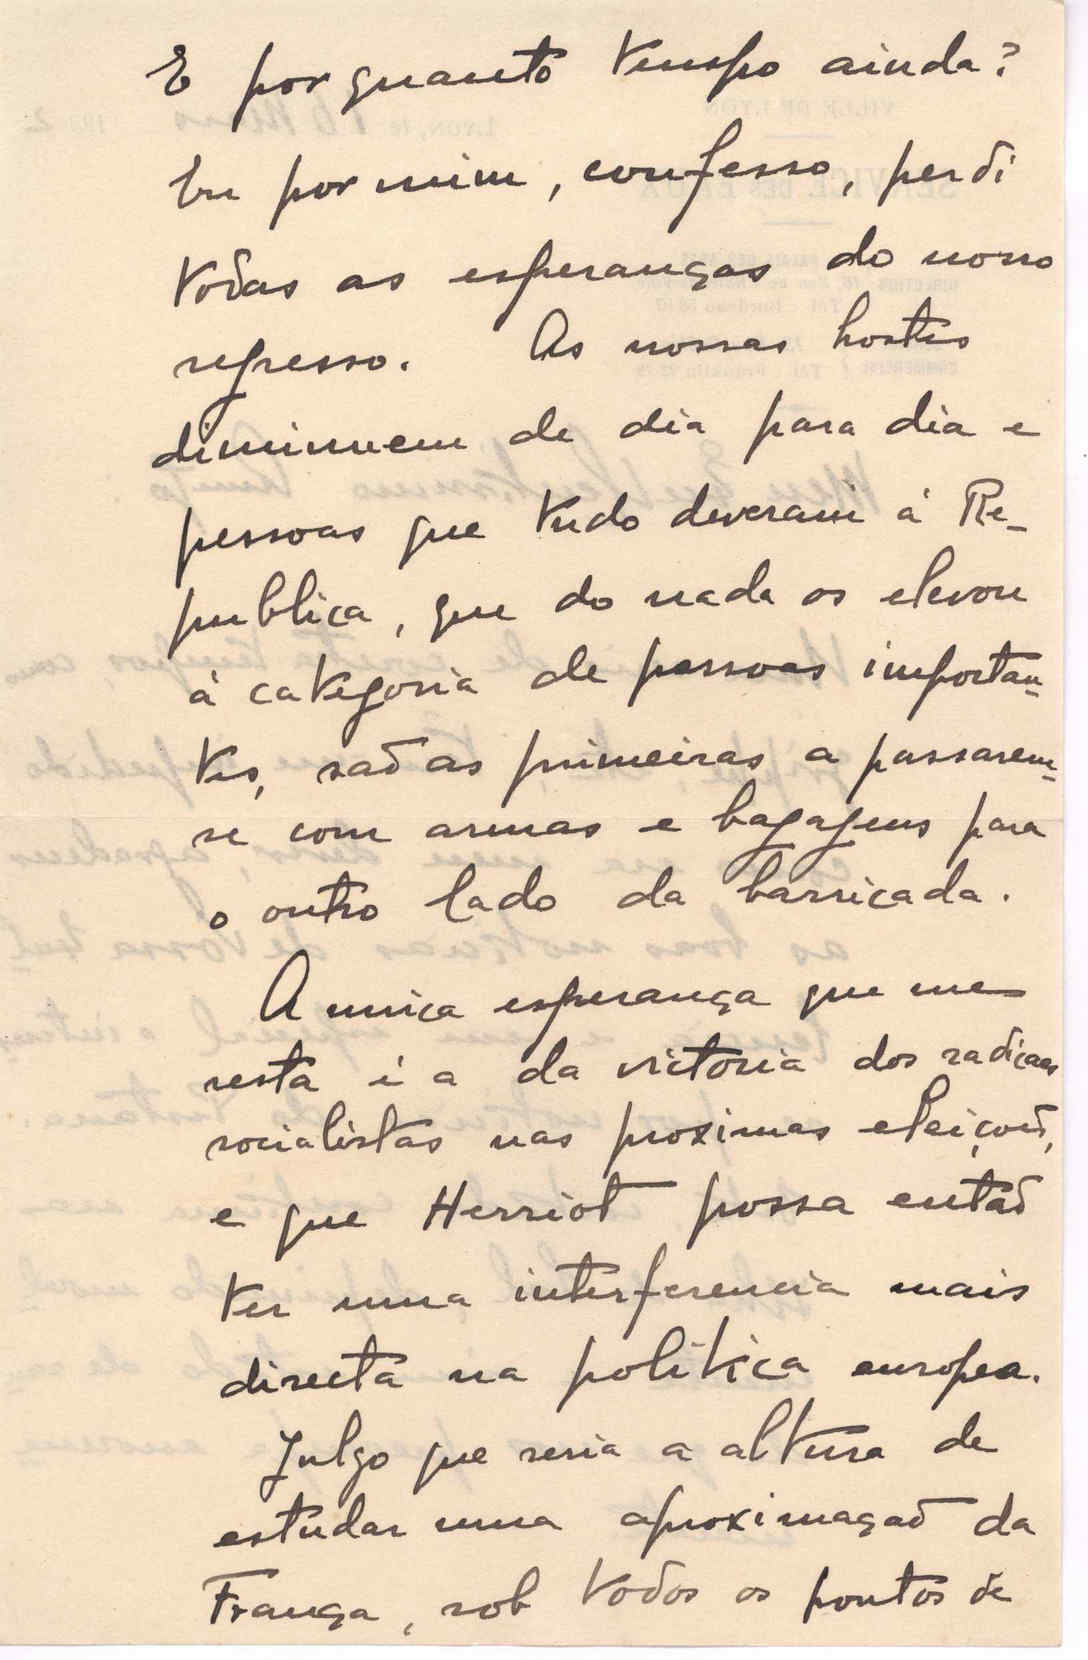 E por quanto tempo ainda?
Eu por mim, confesso, perdi
todas as esperanças do nosso
regresso. As nossas hostes
diminuem de dia para dia e
pessoas que tudo deveram á Re-
publica, que do nada os elevou
á categoria de pessoas importan-
tes, saõ as primeiras a passarem-
se com armas e bagagens para
o outro lado da barricada.
A unica esperança que me
resta é a da victoria dos radicaes
socialistas nas proximas eleiçoẽs,
e que Herriot possa entaõ
ter uma interferencia mais
directa na politica europea.
Julgo que seria a altura de
estudar uma aproximaçaõ da
França, sob todos os pontos de